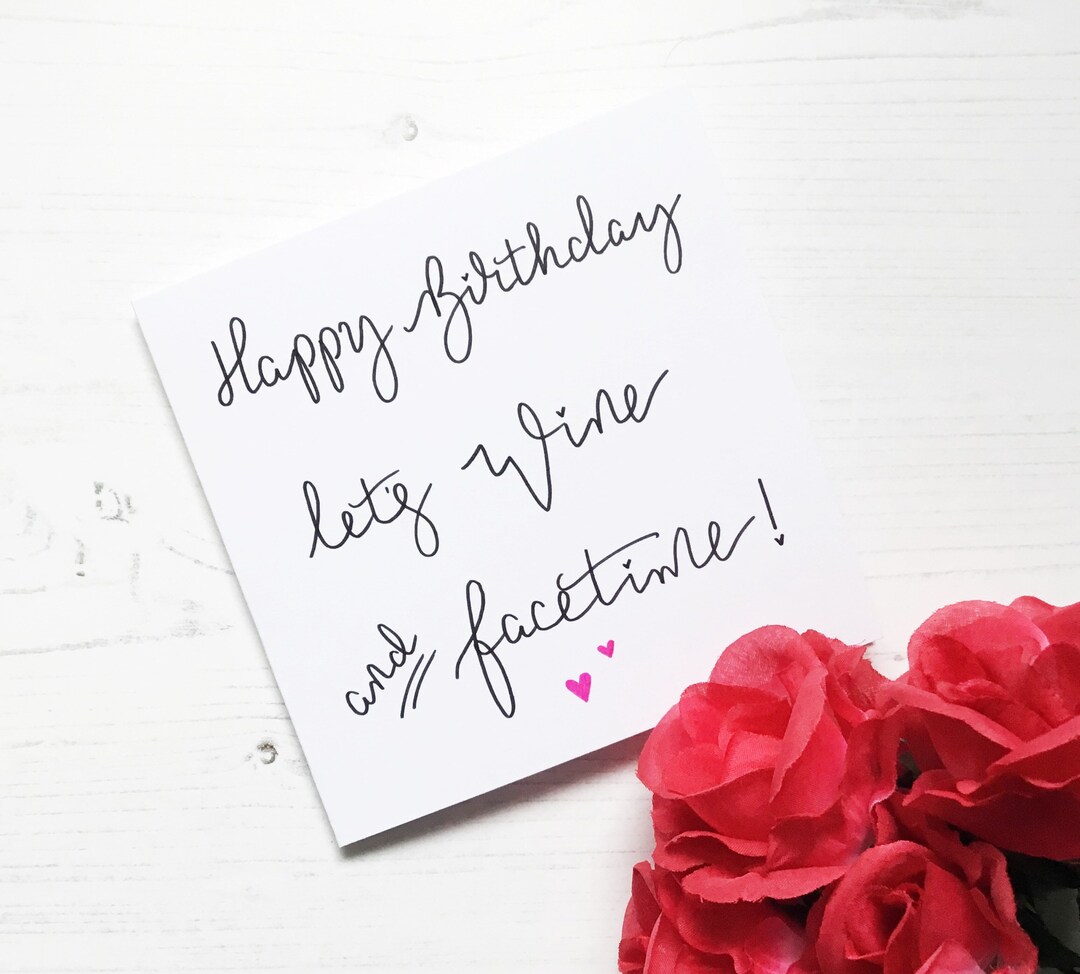 Happy Birthday
let's Wine
and facetime!